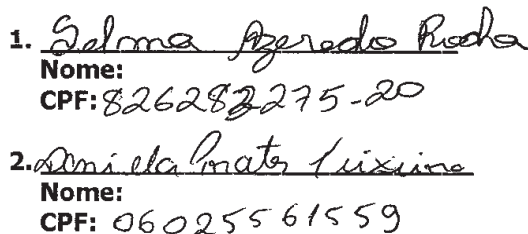 1. Selma Azeredo Rocha
Nome:
CPF: 826282275-20
2. Daniela Prates Teixeira
Nome:
CPF: 06025561559